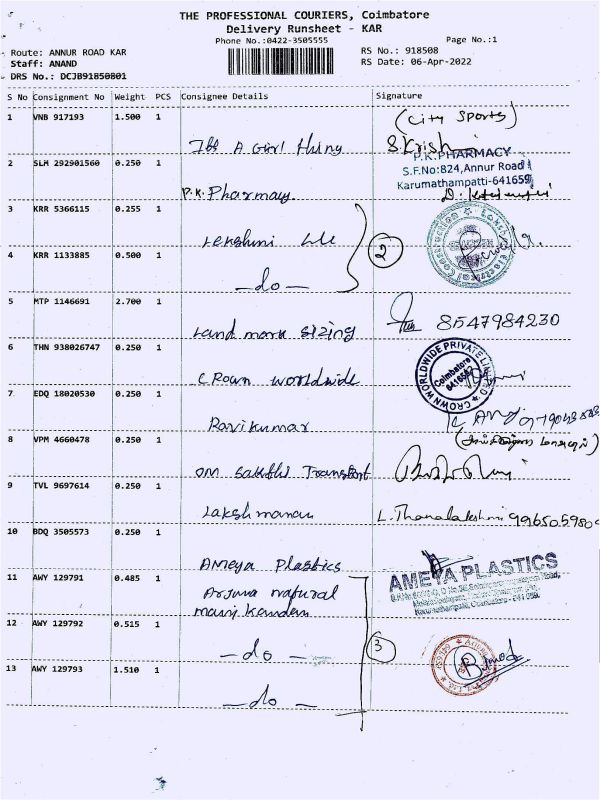 THE PROFESSIONAL COURIERS, Coimbatore
Delivery Runsheet - KAR
Phone No.:0422-3505555
Page No.:1
Route: ANNUR ROAD KAR
Staff: ANAND
DRS No.: DCJB91850801
RS No.: 918508
RS Date: 06-Apr-2022
S No Consignment No Weight PCS Consignee Details Signature
1 VNB 917193 1.500 1 A Girl (City Sports)
S. Krish
2 SLM 292901560 0.250 1 P.K. Pharmacy
P.K. PHARMACY
S.F.No:824, Annur Road
Karumathampatti-641659
3 KRR 5366115 0.255 1 Lekshmi
4 KRR 1133885 0.500 1 - do - 2
5 MTP 1146691 2.700 1 Land mark sizing 8547984230
6 THN 938026747 0.250 1 Crown worldwide
CROWN WORLDWIDE PRIVATE LIMITED
Coimbatore
7 EDQ 18020530 0.250 1 Ravikumar
8 VPM 4660478 0.250 1 OM Sakthi Transport
9 TVL 9697614 0.250 1 Lakshmanan L. Thanalakshmi 996505980
10 BDQ 3505573 0.250 1 Ameya Plastics
AMEYA PLASTICS
11 AWY 129791 0.485 1 Arjuna natural
manikandan
12 AWY 129792 0.515 1 - do - 3
13 AWY 129793 1.510 1 - do -